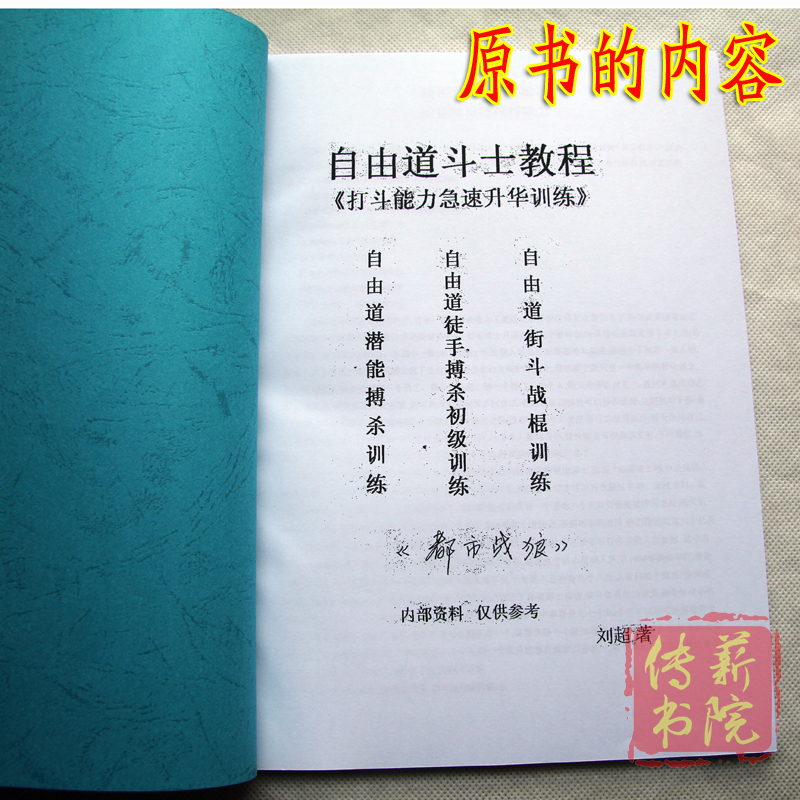 原书的内容
自由道斗士教程
《打斗能力急速升华训练》
自由道街斗战棍训练
自由道徒手搏杀初级训练
自由道潜能搏杀训练
《都市战狼》
内部资料 仅供参考
刘超 著
薪传
书院